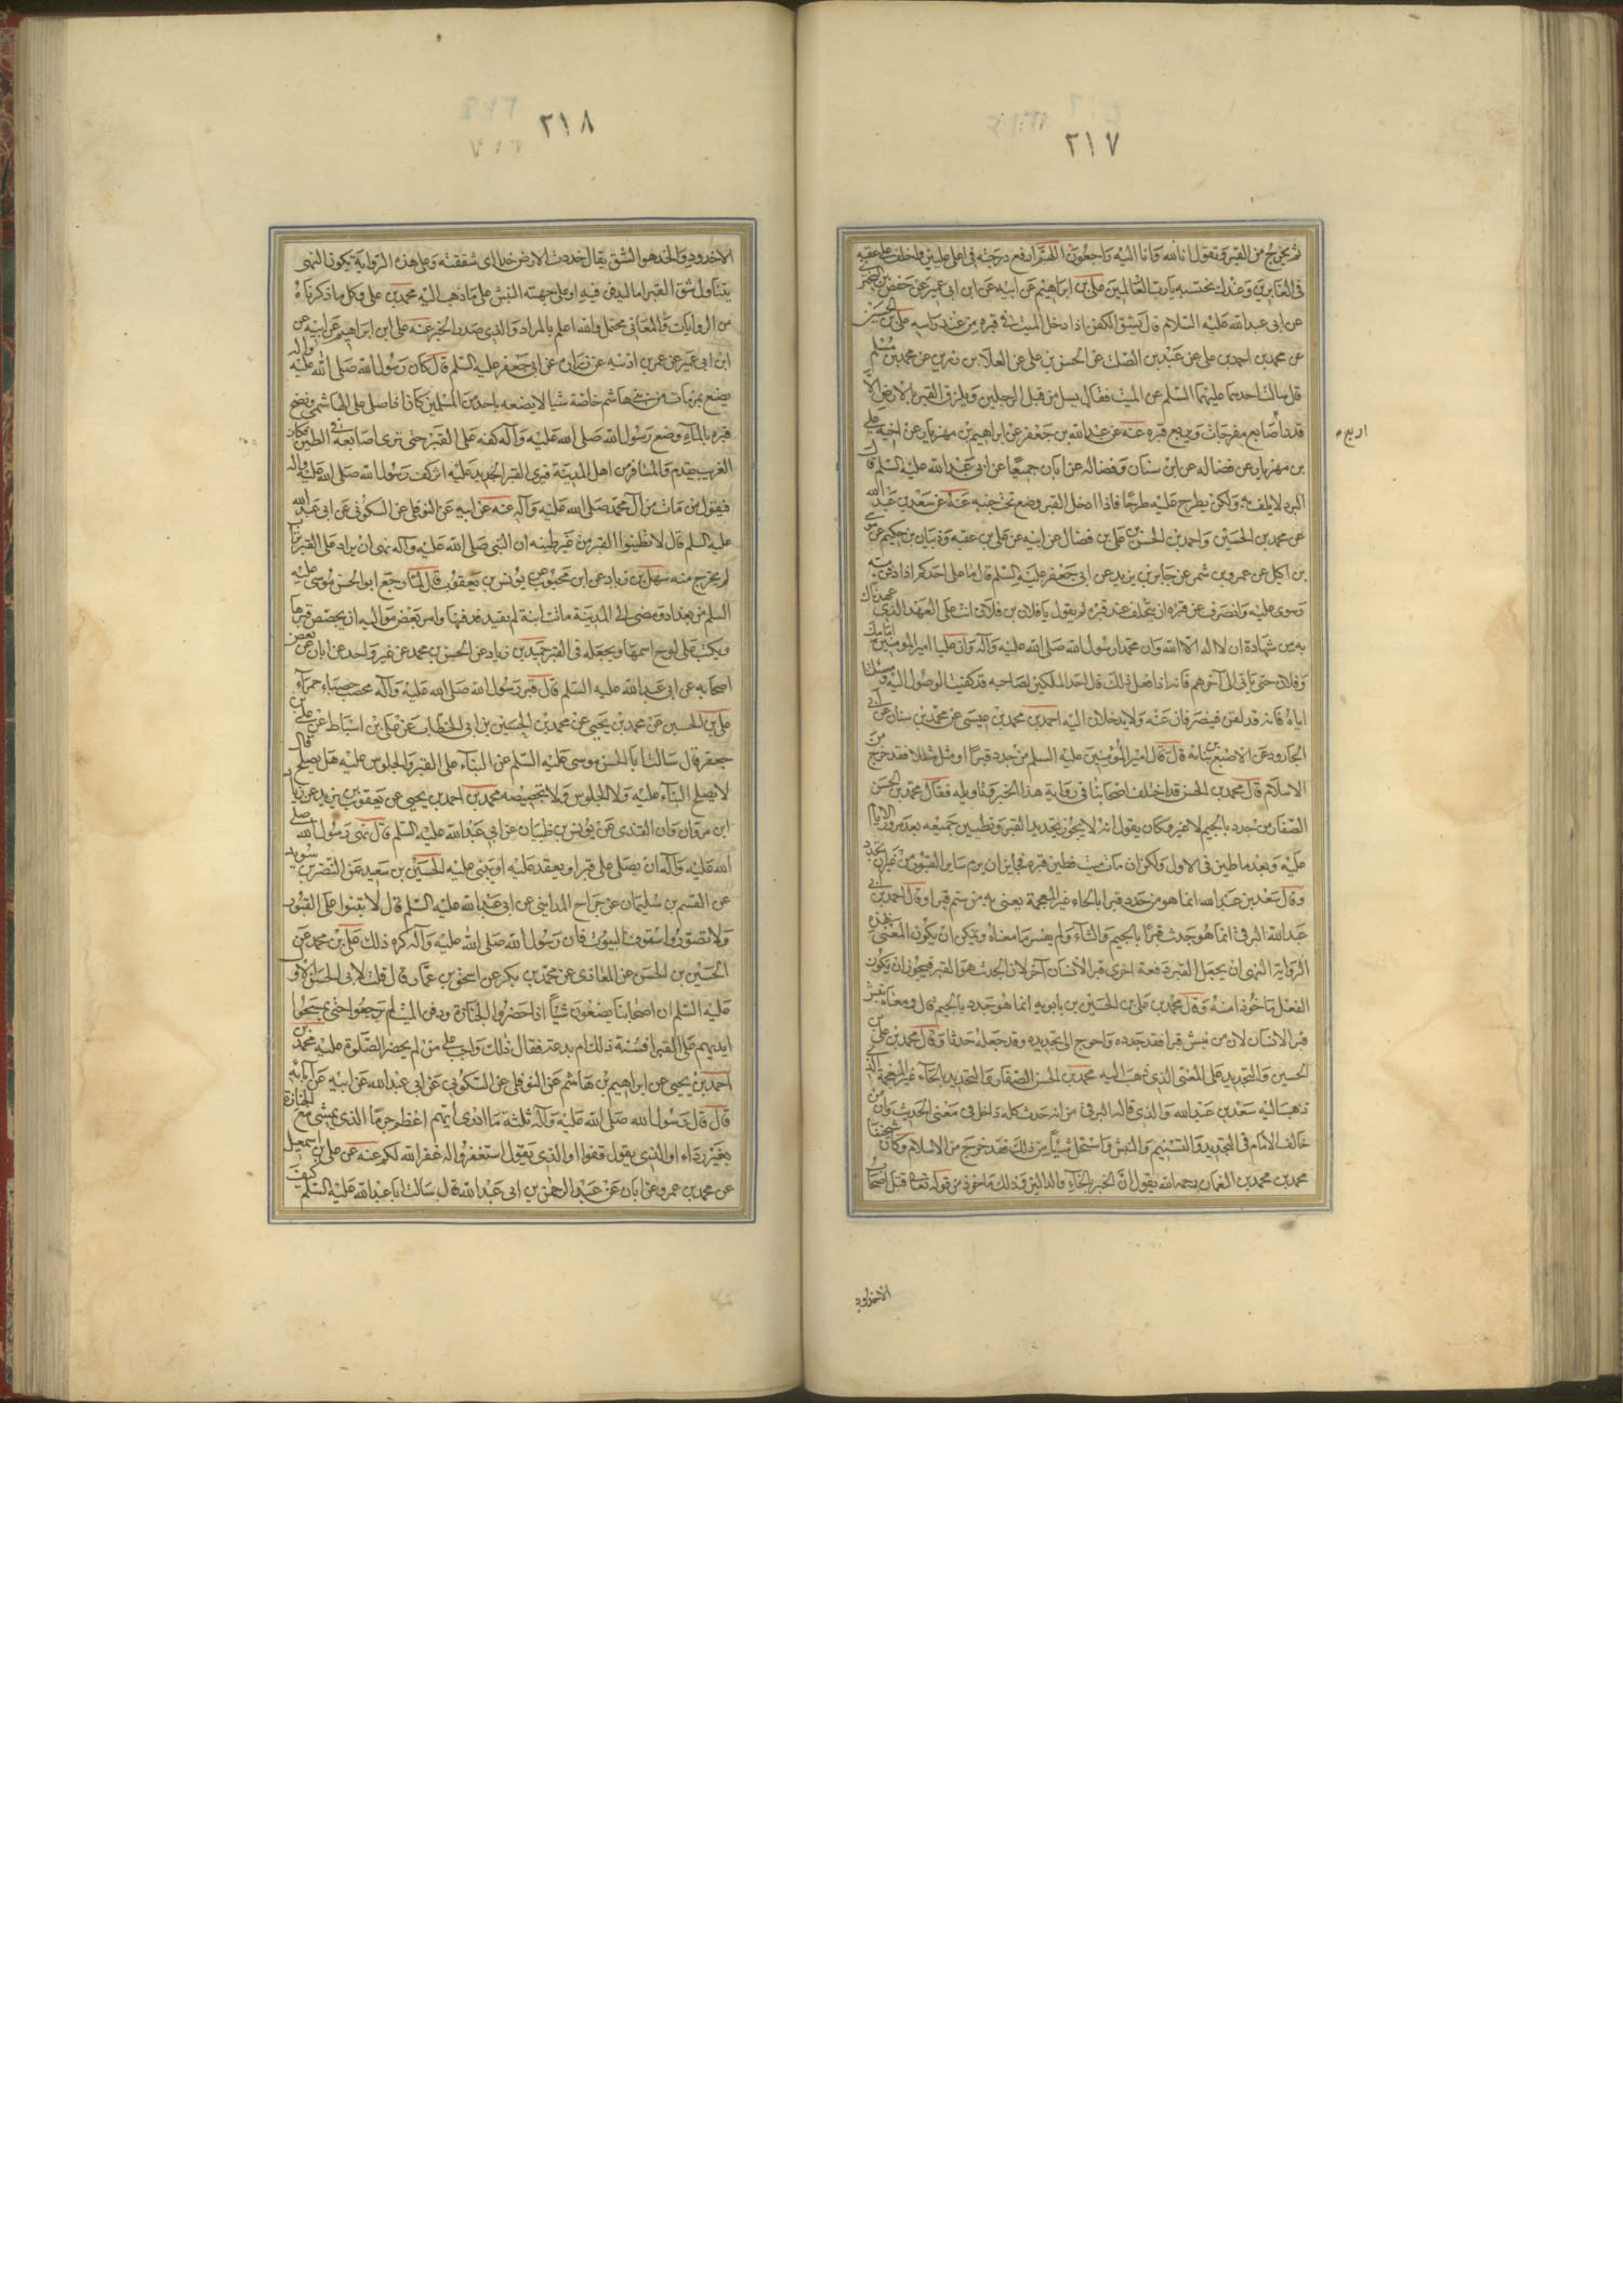 ٢١٧
ثم يخرج من القبر وتقول انا لله وانا اليه راجعون اللهم ارفع درجته فى اعلى عليين واخلف على عقبه
فى الغابرين وعندك نحتسبه يا رب العالمين على بن ابراهيم عن ابيه عن ابن ابى عمير عن حفص بن البخترى
عن ابى عبد الله عليه السلام قال يشق الكفن اذا دخل الميت فى قبره من عند راسه على بن الحسين
عن محمد بن احمد بن على عن عبد بن الصلت عن الحسن بن على عن العلا بن رزين عن محمد بن مسلم
قال سالت احدهما عليهما السلم عن الميت فقال يسل من قبل الرجلين ويلزق القبر بالارض الا
قدر اصابع مفرجات ويربع قبره عنه عن عبد الله بن جعفر عن ابراهيم بن مهزيار عن اخيه على
اربع
بن مهزيار عن فضاله عن ابن سنان وفضاله عن ابان جميعا عن ابى عبد الله عليه السلم قال
البرد لا يلف به ولكن يطرح عليه طرحا فاذا ادخل القبر وضع تحت جنبه عنه عن سعد بن عبد الله
عن محمد بن الحسين واحمد بن الحسن بن على بن فضال عن ابيه عن على بن عقبه وذبيان بن حكيم عن موسى
بن اكيل عن عمرو بن شمر عن جابر بن يزيد عن ابى جعفر عليه السلم قال ما على احدكم اذا دفن ميته
وسوى عليه وانصرف عن قبره ان يتخلف عند قبره ثم يقول يا فلان بن فلان انت على العهد الذى عهدناك
به من شهادة ان لا اله الا الله وان محمدا رسول الله صلى الله عليه وآله وان عليا امير المومنين امامك
وفلان حتى ياتى الى آخرهم فانه اذا فعل ذلك قال احد الملكين لصاحبه قد كفينا الوصول اليه ومسئلتنا
اياه فانه قد لقن فينصرفان عنه ولا يدخلان اليه احمد بن محمد بن عيسى عن محمد بن سنان عن ابى
الجارود عن الاصبغ بن نباته قال قال امير المؤمنين عليه السلم من جدد قبرا او مثل مثالا فقد خرج من
الاسلام قال محمد بن الحسن قد اختلف اصحابنا فى رواية هذا الخبر وتاويله فقال محمد بن الحسن
الصفار من جدد بالجيم لا غير وكان يقول انه لا يجوز تجديد القبر وتطيين جميعه بعد مرور الايام
عليه وبعد ما طين فى الاول ولكن ان مات ميت فطين قبره فجايز ان يرم ساير القبور من غير ان يجدد
وقال سعد بن عبد الله انما هو من حدد قبرا بالحاء غير المعجمة يعنى به من سنم قبرا وقال احمد بن ابى
عبد الله البرقى انما هو جدث قبرا بالجيم والثاء ولم يفسر ما معناه ويمكن ان يكون المعنى بهذه
الرواية النهى ان يجعل القبر دفعة اخرى قبرا لانسان آخر لان الجدث هو القبر فيجوز ان يكون
الفعل ماخوذا منه وقال محمد بن على بن الحسين بن بابويه انما هو جدد بالجيم قال ومعناه نبش
قبرا لانسان لان من نبش قبرا فقد جدده واحوج الى تجديده وقد جعله جدثا وقال محمد بن على بن
الحسين والتجديد على المعنى الذى ذهب اليه محمد بن الحسن الصفار والتحديد بالحاء غير المعجمة الذى
ذهب اليه سعد بن عبد الله والذى قاله البرقى من انه جدث كله داخل فى معنى الحديث وان من
خالف الامام فى التجديد والتسنيم والنبش واستحل شيئا من ذلك فقد خرج من الاسلام وكان شيخنا
محمد بن محمد بن النعمان رحمه الله يقول ان الخبر بالخاء والدالين وذلك ماخوذ من قوله تعالى قتل اصحاب
الاخدود
٢١٨
الاخدود والخد هو الشق يقال خددت الارض خدا اى شققته وعلى هذه الرواية يكون النهى
يتناول شق القبر اما ليدفن فيه او على جهته النبش على ما ذهب اليه محمد بن على وكل ما ذكرناه
من الروايات والمعانى محتمل والله اعلم بالمراد والذى صدر الخبر عنه على ابن ابراهيم عن ابيه عن
ابن ابى عمير عن عمر بن اذنيه عن زرارة عن ابى جعفر عليه السلم قال كان رسول الله صلى الله عليه وآله
يضع بمن مات من بنى هاشم خاصة شيا لا يضعه باحد من المسلمين كان اذا صلى على الهاشمى ونضح
قبره بالماء وضع رسول الله صلى الله عليه وآله كفه على القبر حتى ترى اصابعه فى الطين فكان
الغريب يقدم والمسافر من اهل المدينة فيرى القبر الجديد عليه اثر كف رسول الله صلى الله عليه وآله
فيقول من مات من آل محمد صلى الله عليه وآله عنه عن ابيه عن النوفلى عن السكونى عن ابى عبد الله
عليه السلم قال لا تطينوا القبر من غير طينه ان النبى صلى الله عليه وآله نهى ان يزاد على القبر تراب
لم يخرج منه سهل بن زياد عن ابن محبوب عن يونس بن يعقوب قال لما رجع ابو الحسن موسى عليه
السلم من بغداد ومضى الى المدينة ماتت ابنة له بفيد فدفنها وامر بعض مواليه ان يجصص قبرها
ويكتب على لوح اسمها ويجعله فى القبر حميد بن زياد عن الحسن بن محمد عن غير واحد عن ابان عن بعض
اصحابه عن ابى عبد الله عليه السلم قال قبر رسول الله صلى الله عليه وآله محصب حصباء حمراء
على بن الحسين عن محمد بن يحيى عن محمد بن الحسين بن ابى الخطاب عن على بن اسباط عن على بن
جعفر قال سالت ابا الحسن موسى عليه السلم عن البناء على القبر والجلوس عليه هل يصلح قال
لا يصلح البناء عليه ولا الجلوس ولا تجصيصه محمد بن احمد بن يحيى عن يعقوب بن يزيد عن زياد
ابن مروان القندى عن يونس بن ظبيان عن ابى عبد الله عليه السلم قال نهى رسول الله صلى
الله عليه وآله ان يصلى على قبر او يعقد عليه او يبنى عليه الحسين بن سعيد عن النضر بن سويد
عن القسم بن سليمان عن جراح المداينى عن ابى عبد الله عليه السلم قال لا تبنوا على القبور
ولا تصوروا سقوف البيوت فان رسول الله صلى الله عليه وآله كره ذلك على بن محمد عن
الحسين بن الحسن عن المعاذى عن محمد بن بكر عن اسحق بن عمار قال قلت لابى الحسن الاول
عليه السلم ان اصحابنا يصنعون شيئا اذا حضروا الجنازة ودفن الميت لم يرجعوا حتى يمسحوا
ايديهم على القبر افسنة ذلك ام بدعة فقال ذلك واجب على من لم يحضر الصلوة عليه محمد بن
احمد بن يحيى عن ابراهيم بن هاشم عن النوفلى عن السكونى عن ابى عبد الله عن ابيه عن آبائه
قال قال رسول الله صلى الله عليه وآله ثلثة ما ادرى ايهم اعظم جرما الذى يمشى مع الجنازة
بغير رداء او الذى يقول قفوا او الذى يقول استغفروا له غفر الله لكم عنه عن على بن اسمعيل
عن محمد بن عمرو عن ابان عن عبد الرحمن بن ابى عبد الله قال سالت ابا عبد الله عليه السلم كيف